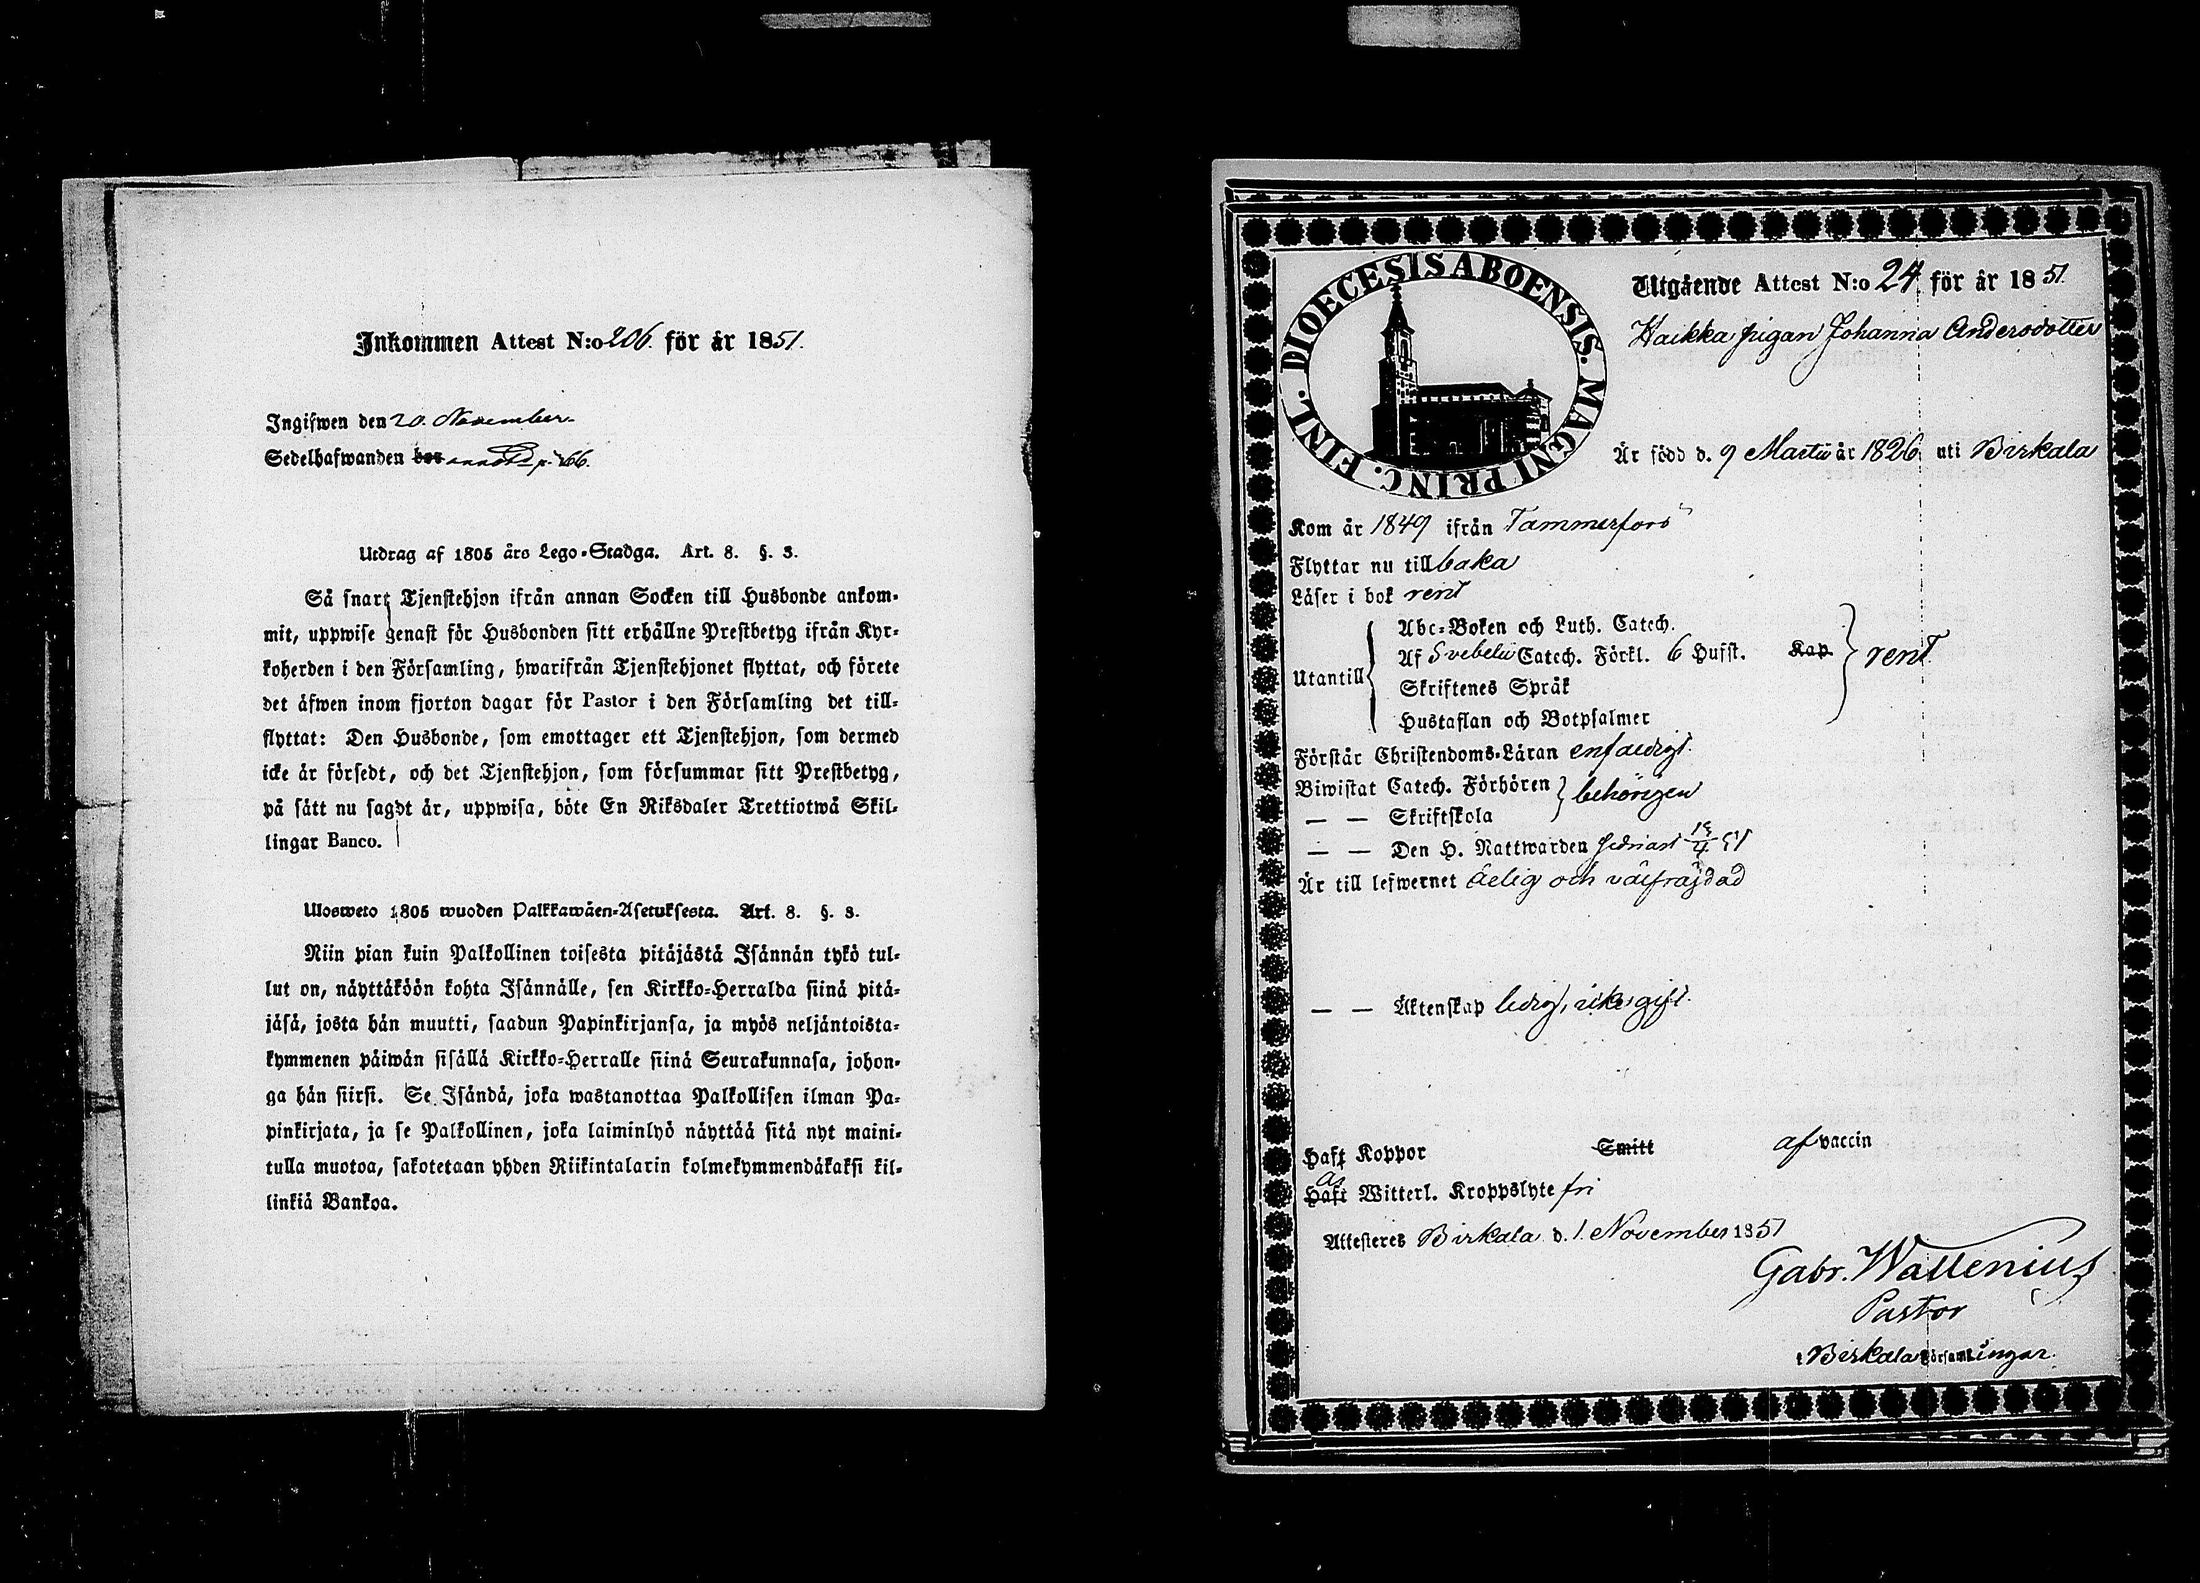 Inkommen Attest N:o 206. för år 1851.
Ingifwen den 20. November.
Sedelhafwanden bor p. 766.
Utdrag af 1805 års Lego-Stadga. Art. 8. §. 3.
Så snart Tjenstehjon ifrån annan Socken till Husbonde ankom-
mit, uppwise genast för Husbonden sitt erhållne Prestbetyg ifrån Kyr-
koherden i den Församling, hwarifrån Tjenstehjonet flyttat, och förete
det äfwen inom fjorton dagar för Pastor i den Församling det till-
flyttat: Den Husbonde, som emottager ett Tjenstehjon, som dermed
icke är försedt, och det Tjenstehjon, som försummar sitt Prestbetyg,
på sätt nu sagdt är, uppwisa, böte En Riksdaler Trettiotwå Skil-
lingar Banco.
Ulosweto 1805 wuoden Palkkawäen-Asetuksesta. Art. 8. §. 3.
Niin pian kuin Palkollinen toisesta pitäjästä Isännän tykö tul-
lut on, näyttäköön kohta Isännälle, sen Kirkko-Herralda siinä pitä-
jäsä, josta hän muutti, saadun Papinkirjansa, ja myös neljäntoista-
kymmenen päiwän sisällä Kirkko-Herralle siinä Seurakunnasa, johon-
ga hän siirsi. Se Isändä, joka wastanottaa Palkollisen ilman Pa-
pinkirjata, ja se Palkollinen, joka laiminlyö näyttää sitä nyt maini-
tulla muotoa, sakotetaan yhden Riikintalarin kolmekymmendäkaksi kil-
linkiä Bankoa.
DIOECESIS ABOENSIS. MAGNI PRINC. FINL.
Utgående Attest N:o 24. för år 1851.
Haikka pigan Johanna Andersdotter
Är född d. 9 Martii år 1826 uti Birkala
Kom år 1849 ifrån Tammerfors
Flyttar nu tillbaka
Läser i bok rent
Utantill
Abc-Boken och Luth. Catech.
Af Svebelii Catech. Förkl. 6 Hufst. Kap. rent
Skriftenes Språk
Hustaflan och Botpsalmer
Förstår Christendoms-Läran enfaldigt.
Biwistat Catech. Förhören behörigen
— — Skriftskola
— — Den H. Nattwarden sednast 51
Är till lefwernet ärlig och välfräjdad
— — Äktenskap ledig, icke gift.
Haft Koppor Smitt af vaccin
Haft Witterl. Kroppslyte fri
Attesteres Birkala d. 1. November 1851
Gabr. Wallenius
Pastor
i Birkala Församlingar.